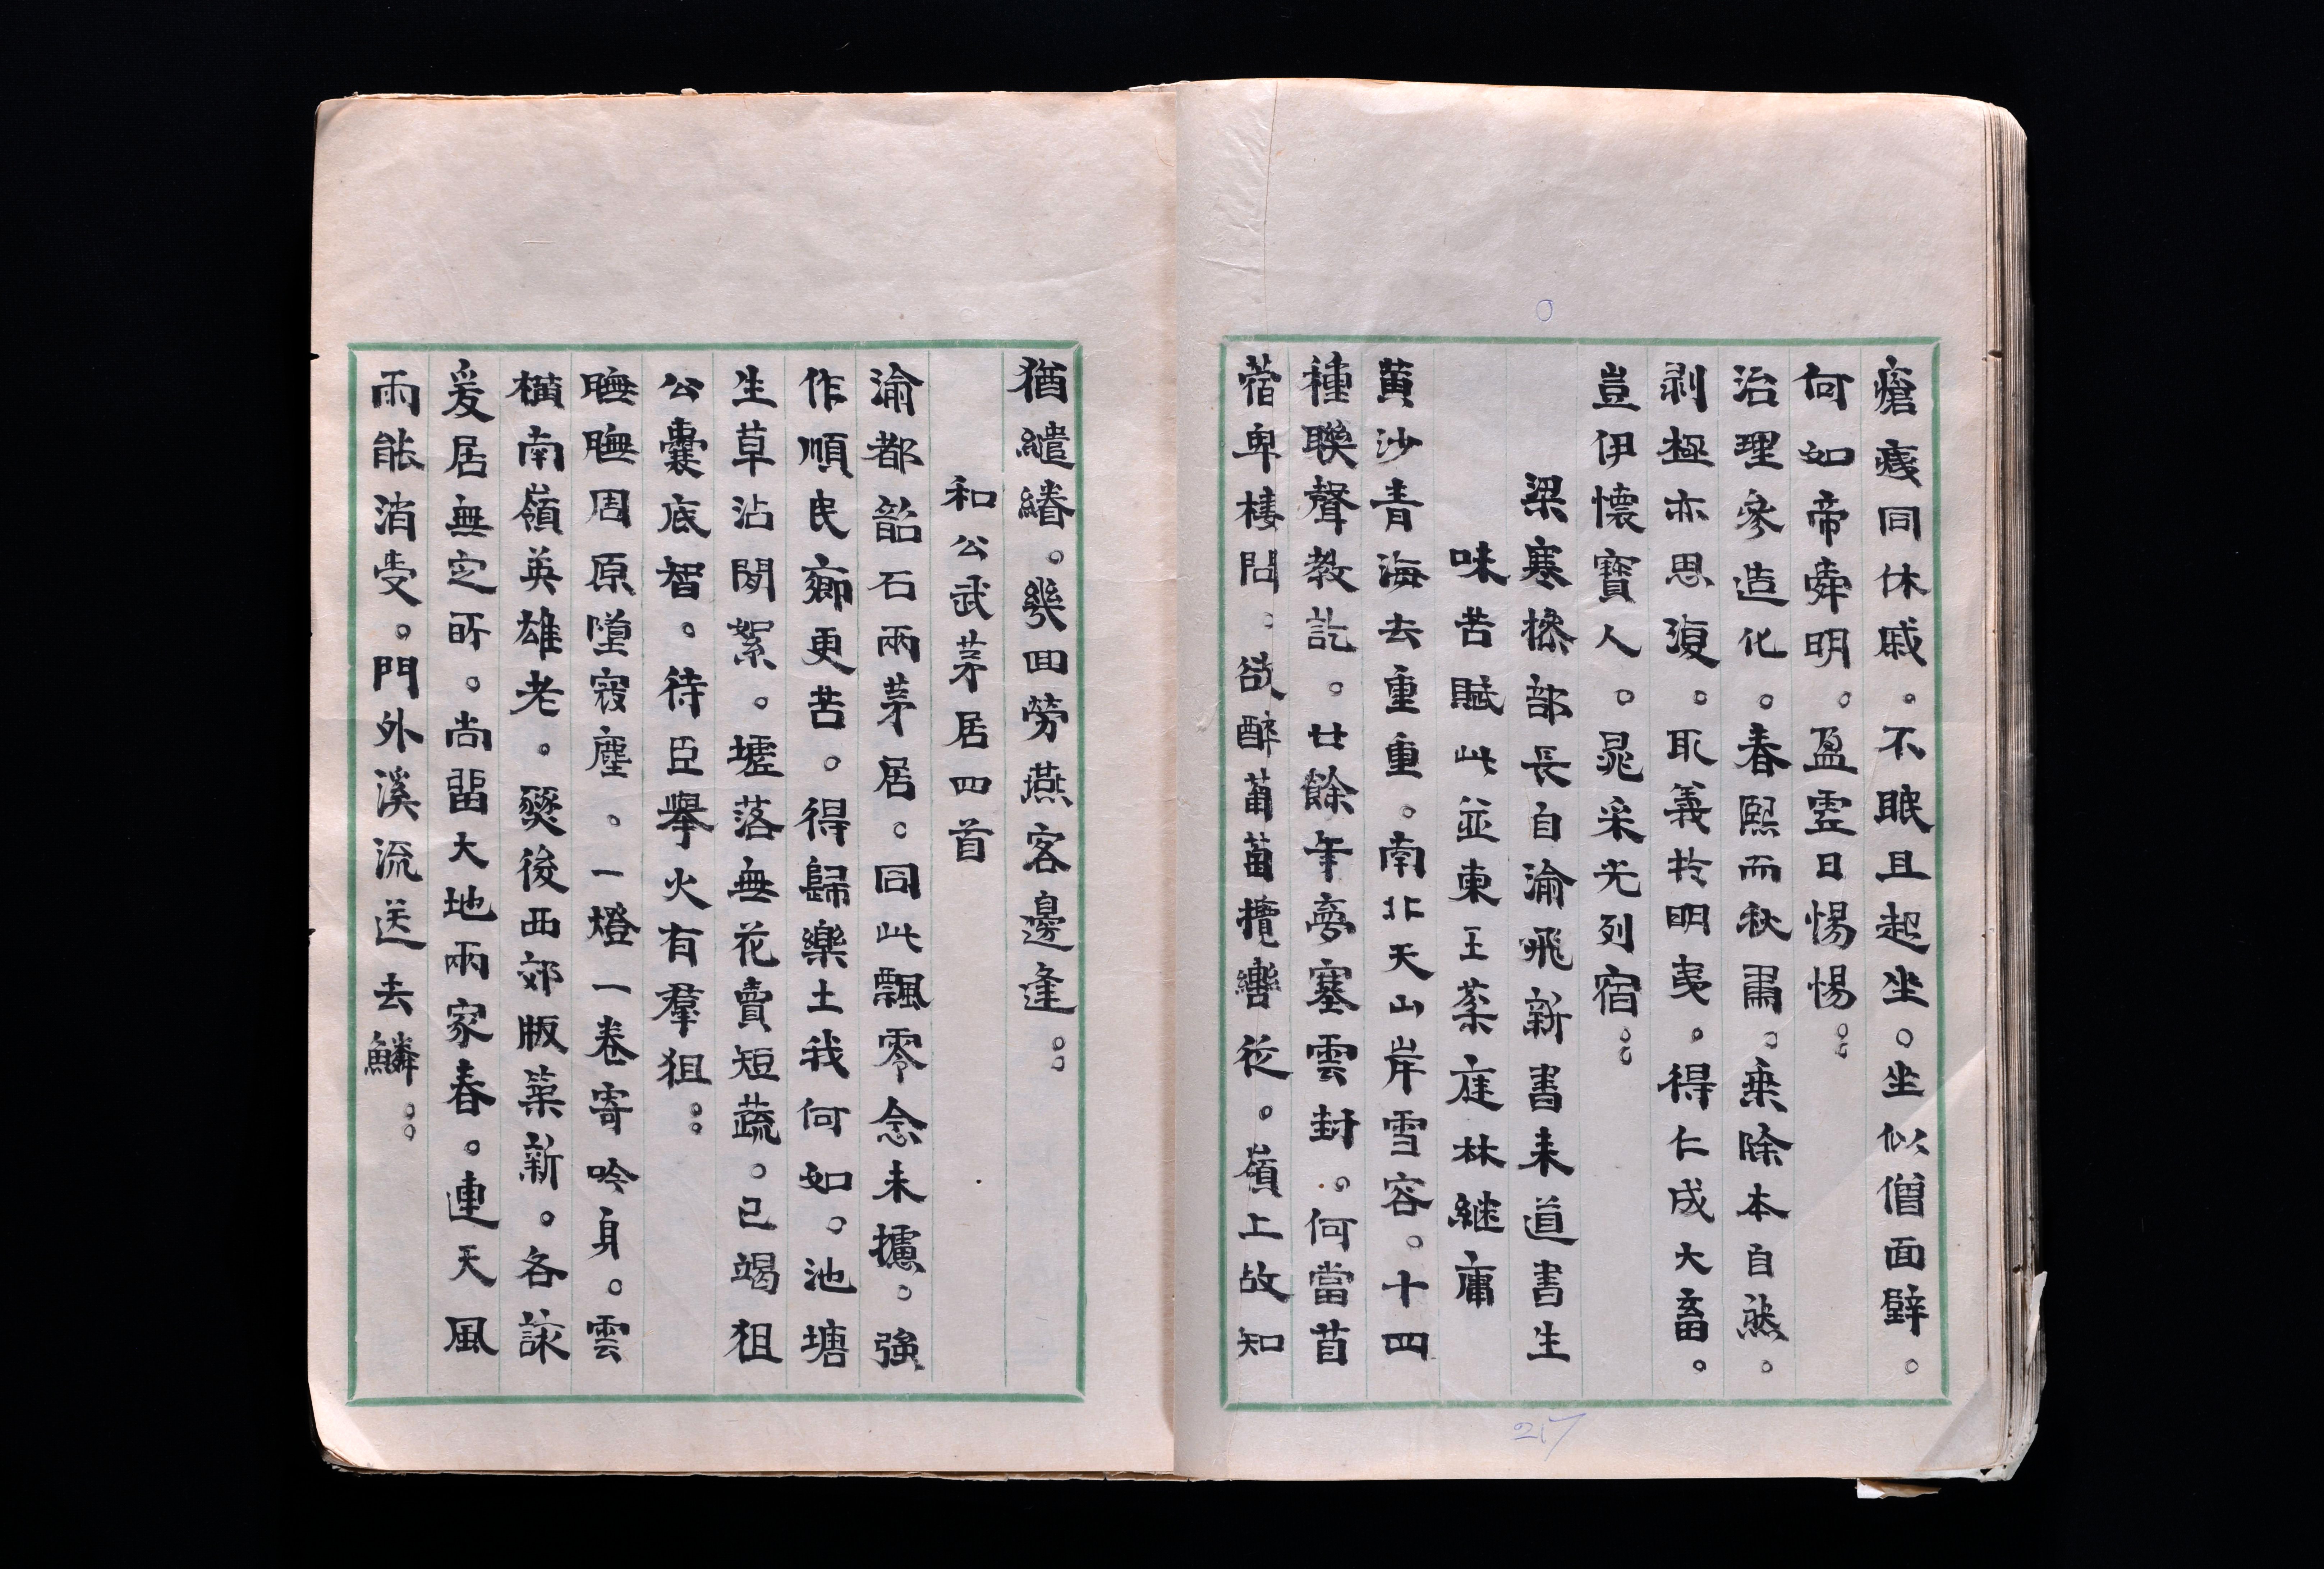 瘡痍同休戚。不眠且起坐。坐似僧面壁。
何如帝舜明。盈虛日惕惕。
治理參造化。春熙而秋肅。乘除本自然。
剥極亦思復。取義於明夷。得仁成大畜。
豈伊懷寶人。晁采光列宿。
梁寒操部長自渝飛新書来道書生
味苦賦此並柬王棻庭林継庸
黄沙青海去重重。南北天山岸雪容。十四
種聯聲教訖。廿餘年夢塞雲封。何當苜
蓿卑棲問。欲醉葡萄攬轡從。嶺上故知
猶繾綣。幾回勞燕客邊逢。
和公武茅居四首
渝都韶石兩茅居。同此飄零念未攄。強
作順民鄉更苦。得歸樂土我何如。池塘
生草沾閒絮。壚落無花賣短蔬。已竭狙
公囊底智。待臣舉火有羣狙。
膴膴周原墮寇塵。一燈一卷寄吟身。雲
橫南嶺英雄老。燹後西郊版築新。各詠
爰居無定所。尚留大地兩家春。連天風
雨能消受。門外溪流送去鱗。
217